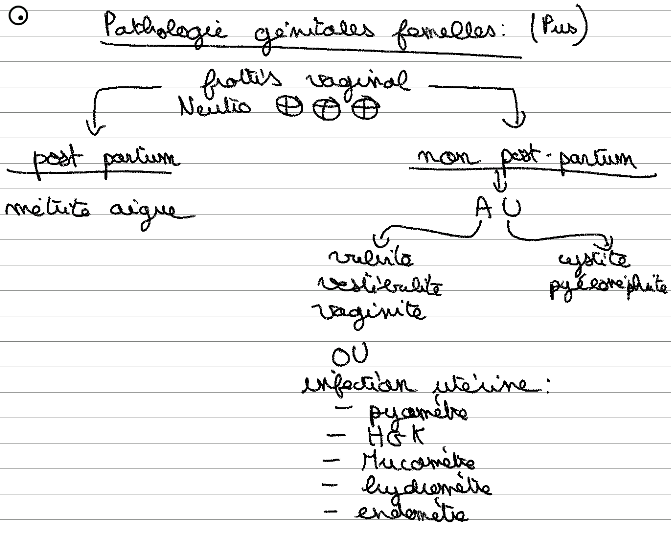 Pathologie génitales femelles : (Pus)
frottis vaginal
Neutro ⊕ ⊕ ⊕
post partum
non post-partum
métrite aigue
AU
vulvite
cystite
vestibulite
pyélonéphrite
vaginite
OU
infection utérine :
- pyomètre
- HGK
- Mucomètre
- hydromètre
- endomètre